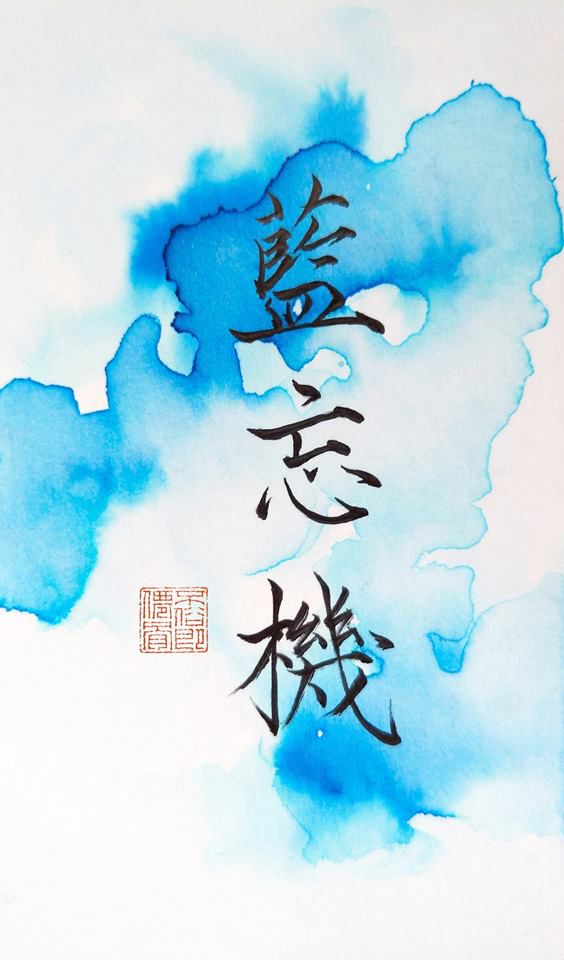 藍忘機